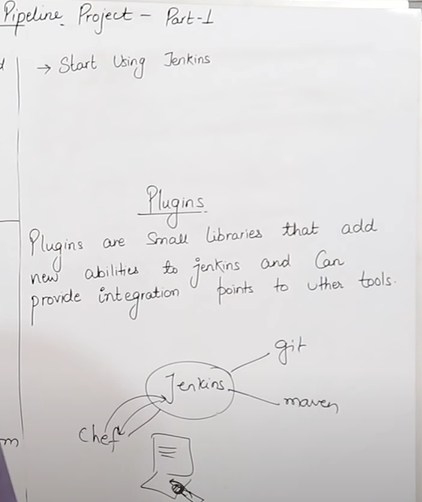 Pipeline Project - Part-1
→ Start Using Jenkins
Plugins
Plugins are Small Libraries that add
new abilities to jenkins and Can
provide integration points to other tools.
git
Jenkins
maven
Chef